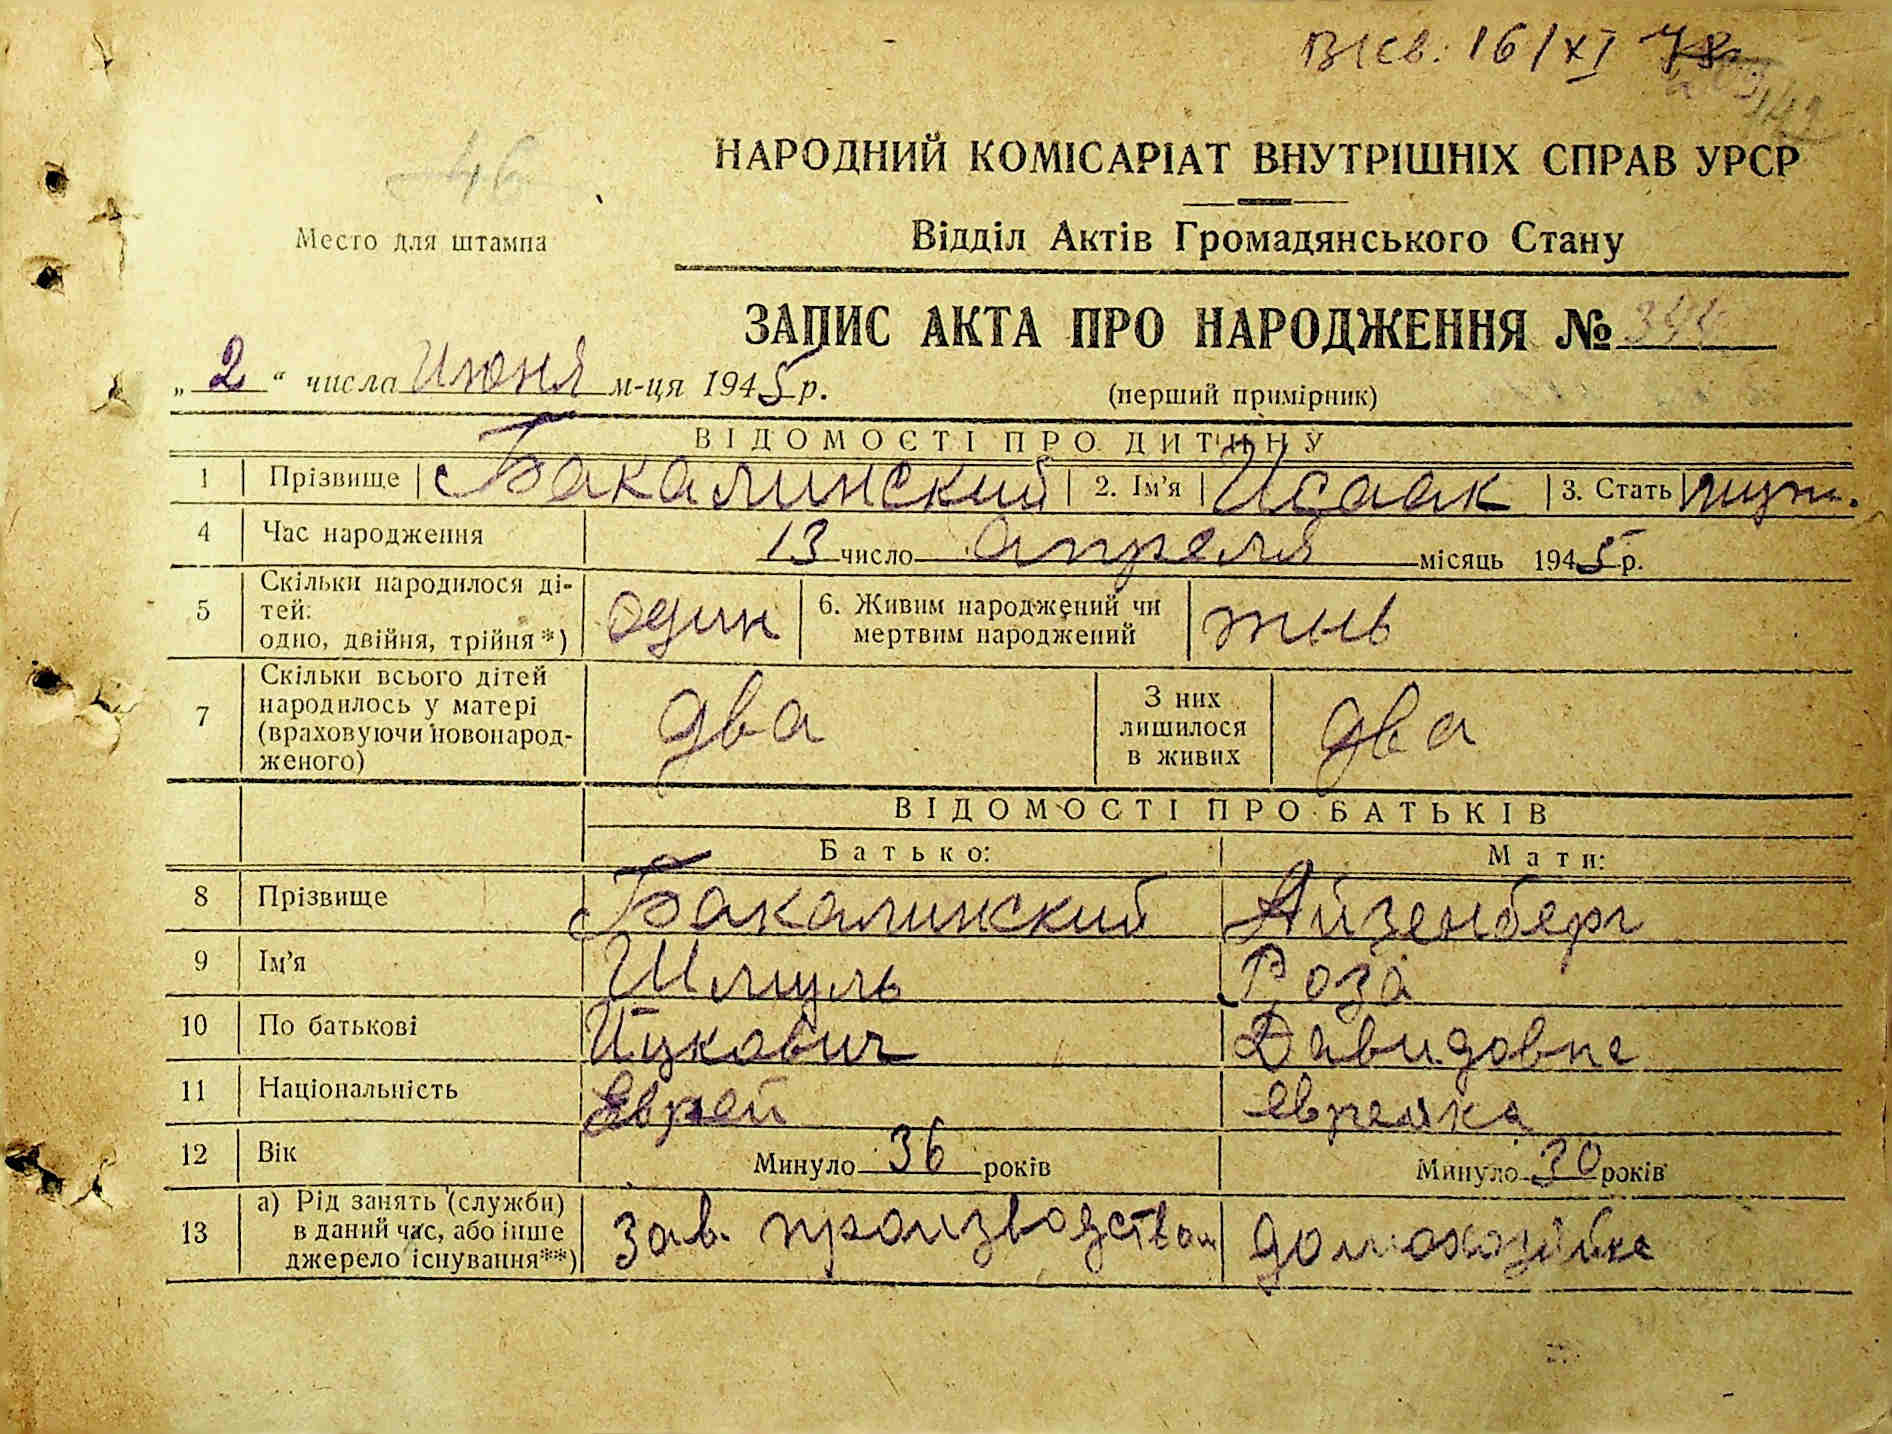 16/XI 78
46
НАРОДНИЙ КОМІСАРІАТ ВНУТРІШНІХ СПРАВ УРСР
Место для штампа
Відділ Актів Громадянського Стану
ЗАПИС АКТА ПРО НАРОДЖЕННЯ № 344
„2“ числа Июня м-ця 1945 р.
(перший примірник)
ВІДОМОСТІ ПРО ДИТИНУ
1 Прізвище Бакалинский 2. Ім'я Исаак 3. Стать муж.
4 Час народження 13 число апреля місяць 1945 р.
5 Скільки народилося ді-
тей:
одно, двійня, трійня*) один 6. Живим народжений чи
мертвим народжений
7 Скільки всього дітей
народилось у матері
(враховуючи новонарод-
женого) два З них
лишилося
в живих два
ВІДОМОСТІ ПРО БАТЬКІВ
Батько: Мати:
8 Прізвище Бакалинский Айзенберг
9 Ім'я Шмуль Роза
10 По батькові Ицкович Давидовна
11 Національність Еврей еврейка
12 Вік Минуло 36 років Минуло 30 років
13 а) Рід занять (служби)
в даний час, або інше
джерело існування**) Зав. производством домохозяйка